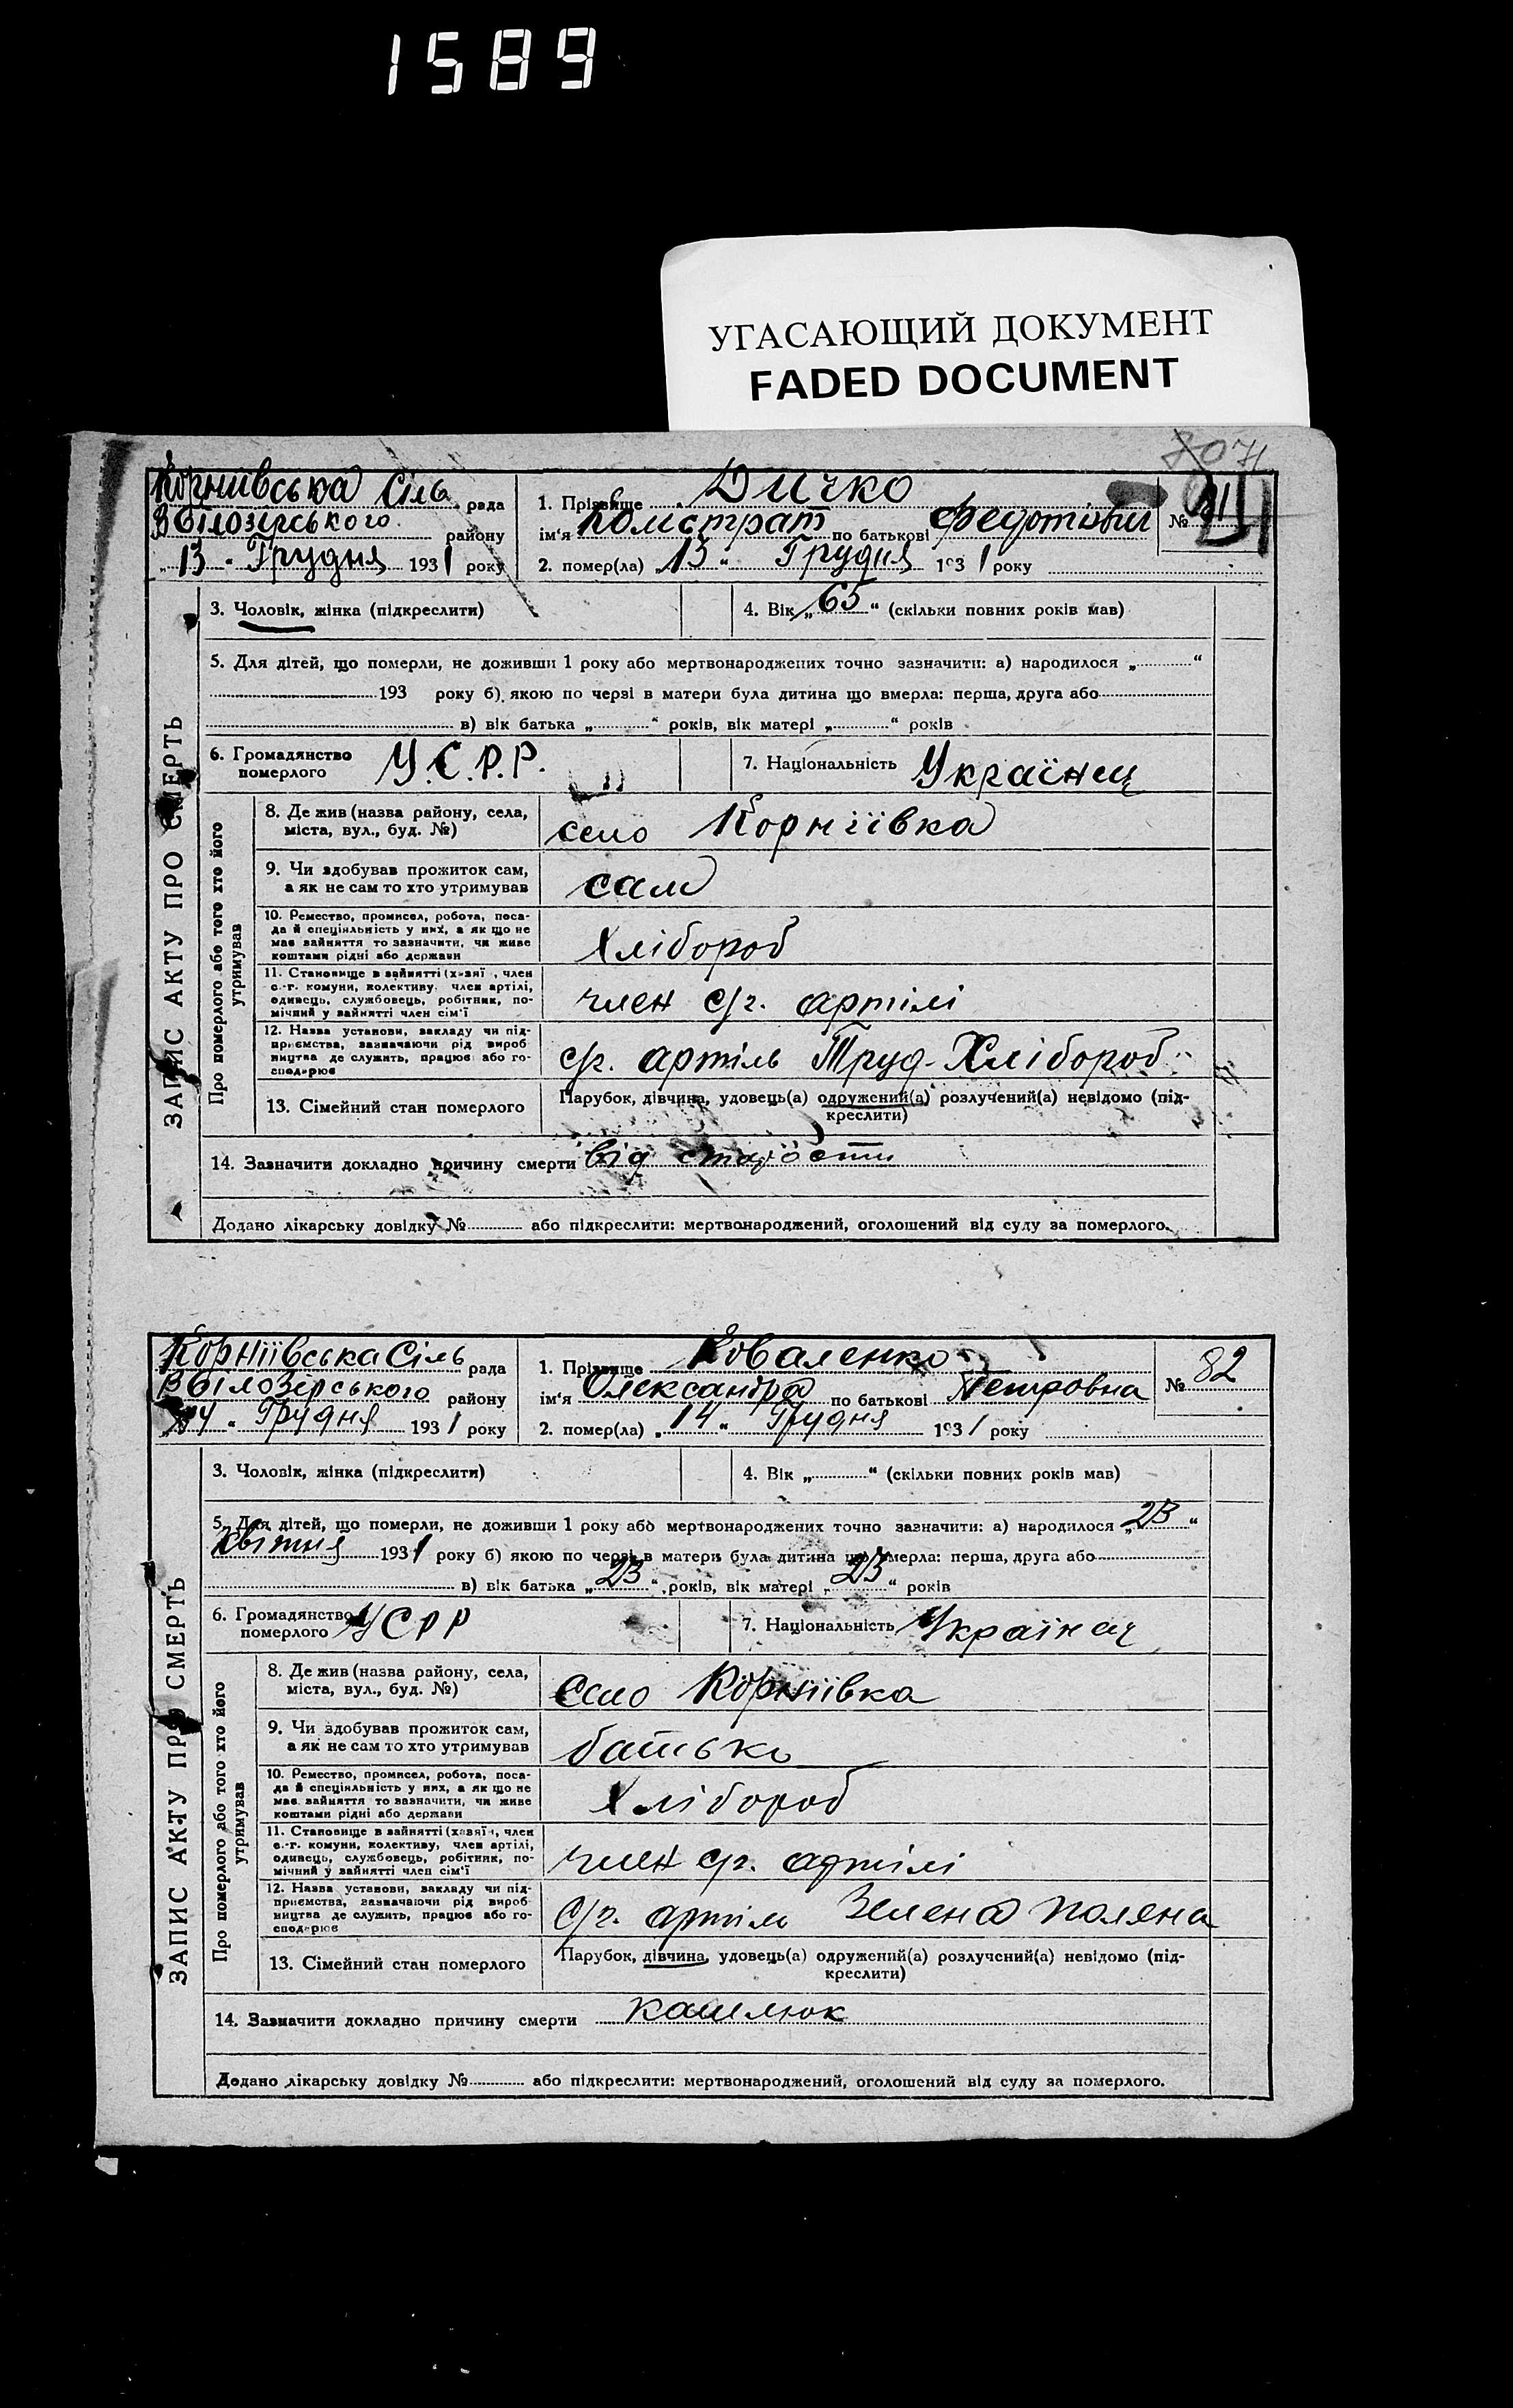 1589
УГАСАЮЩИЙ ДОКУМЕНТ
FADED DOCUMENT
Корніївська Сіль рада
Білозірського району
„13“ Грудня 1931 року
1. Прізвище Дичко
ім'я Калистрат по батькові Федотівич
№ 81
2. помер(ла) „13“ Грудня 1931 року
ЗАПИС АКТУ ПРО СМЕРТЬ
3. Чоловік, жінка (підкреслити)
4. Вік „65“ (скільки повних років мав)
5. Для дітей, що померли, не доживши 1 року або мертвонароджених точно зазначити: а) народилося „ “
193 року б) якою по черзі в матери була дитина що вмерла: перша, друга або
в) вік батька „ “ років, вік матері „ “ років
6. Громадянство померлого У.С.Р.Р.
7. Національність Українец
Про померлого або того хто його утримував
8. Де жив (назва району, села, міста, вул., буд. №) село Корніївка
9. Чи здобував прожиток сам, а як не сам то хто утримував сам
10. Ремество, промисел, робота, поса-
да й спеціяльність у них, а як що не
має зайняття то зазначити, чи живе
коштами рідні або держави
Хлібороб
11. Становище в зайнятті (хазяї , член
с.-г. комуни, колективу, член артілі,
одинець, службовець, робітник, по-
мічний у зайнятті член сім'ї
член с/г. артілі
12. Назва установи, закладу чи під-
приємства, зазначаючи рід вироб
ництва де служить, працює або го-
сподарює
с/г. артіль Труд-Хлібороб
13. Сімейний стан померлого
Парубок, дівчина, удовець(а) одружений(а) розлучений(а) невідомо (під-
креслити)
14. Зазначити докладно причину смерти від старости
Додано лікарську довідку № або підкреслити: мертвонароджений, оголошений від суду за померлого.
Корніівська Сіль рада
Білозерського району
„14“ Грудня 1931 року
1. Прізвище Коваленко
ім'я Олександра по батькові Петровна
№ 82
2. помер(ла) „14“ Грудня 1931 року
ЗАПИС АКТУ ПРО СМЕРТЬ
3. Чоловік, жінка (підкреслити)
4. Вік „ “ (скільки повних років мав)
5. Для дітей, що померли, не доживши 1 року або мертвонароджених точно зазначити: а) народилося „23“
Квітня 1931 року б) якою по черзі в матери була дитина що вмерла: перша, друга або
в) вік батька „23“ років, вік матері „23“ років
6. Громадянство померлого УСРР
7. Національність Українец
Про померлого або того хто його утримував
8. Де жив (назва району, села, міста, вул., буд. №) село Корніівка
9. Чи здобував прожиток сам, а як не сам то хто утримував батько
10. Ремество, промисел, робота, поса-
да й спеціяльність у них, а як що не
має зайняття то зазначити, чи живе
коштами рідні або держави
Хлібороб
11. Становище в зайнятті (хазяїн, член
с.-г. комуни, колективу, член артілі,
одинець, службовець, робітник, по-
мічний у зайнятті член сім'ї
член с/г. артілі
12. Назва установи, закладу чи під-
приємства, зазначаючи рід вироб
ництва де служить, працює або го-
сподарює
С/г. артіль Зелена поляна
13. Сімейний стан померлого
Парубок, дівчина, удовець(а) одружений(а) розлучений(а) невідомо (під-
креслити)
14. Зазначити докладно причину смерти кашлюк
Додано лікарську довідку № або підкреслити: мертвонароджений, оголошений від суду за померлого.